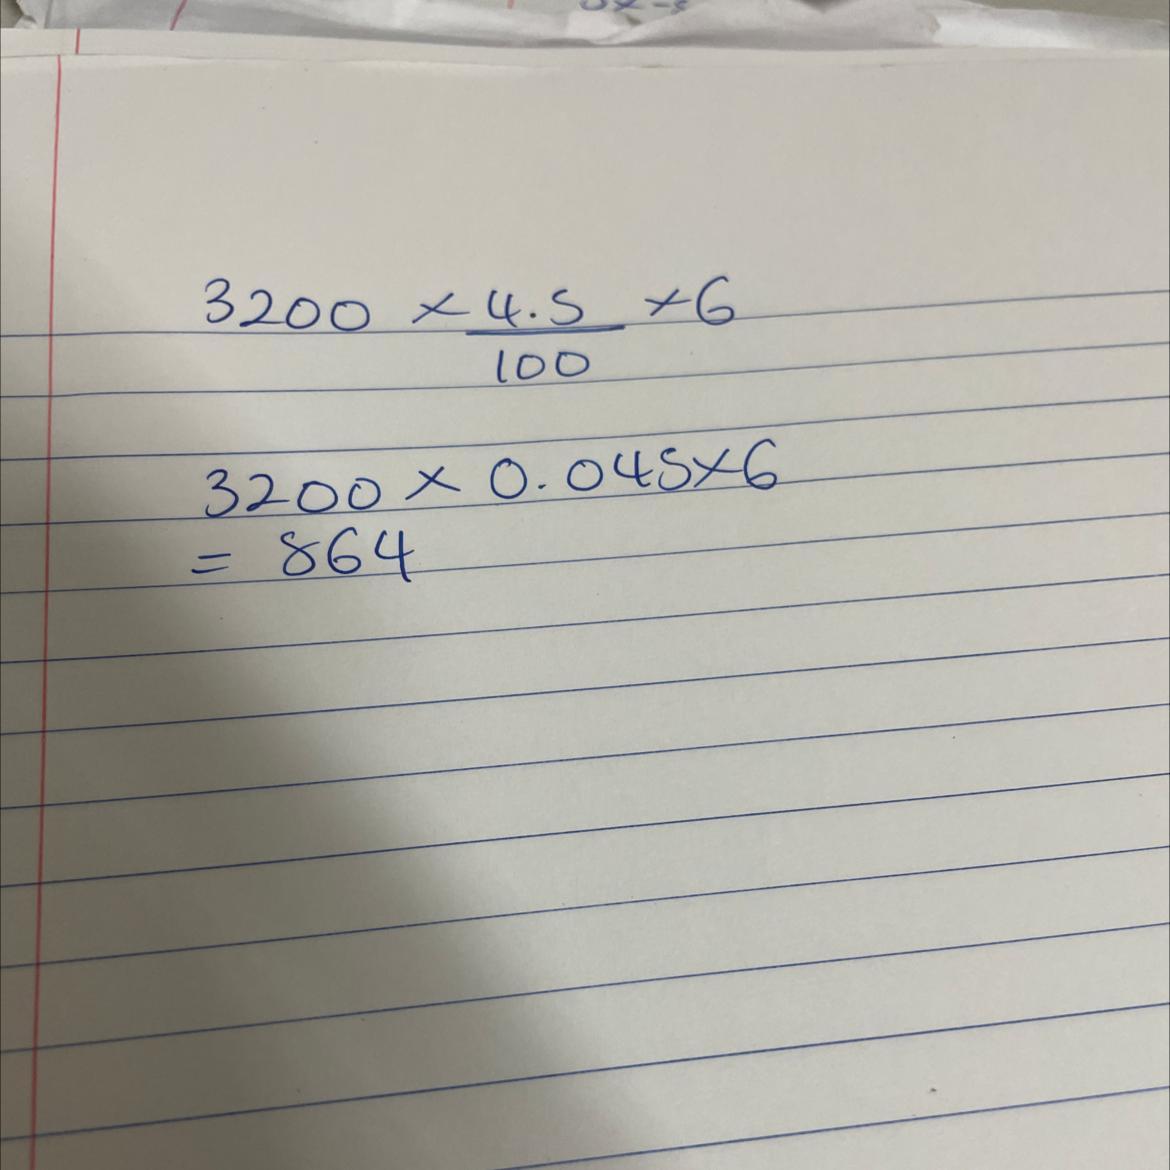 3200 × 4.5/100 × 6
3200 × 0.045×6
= 864